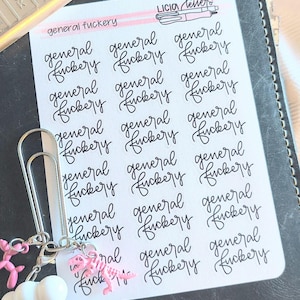 general fuckery
general general general
fuckery fuckery fuckery
general general general
fuckery fuckery fuckery
general general general
fuckery fuckery fuckery
general general general
fuckery fuckery fuckery
general general general
fuckery fuckery fuckery
general general general
fuckery fuckery fuckery